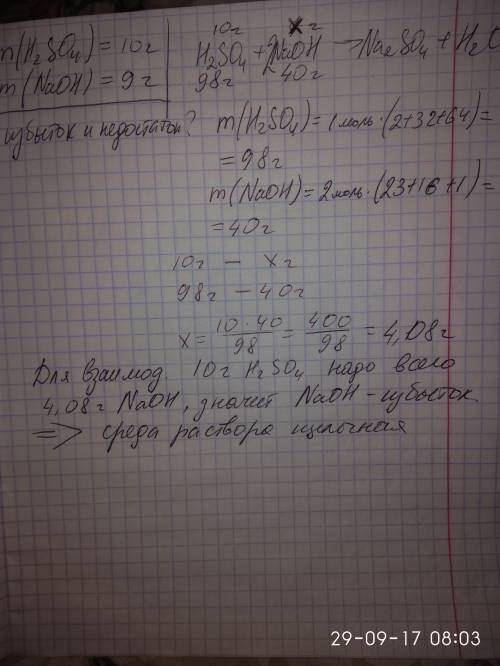 m(H₂SO₄) = 10г
m(NaOH) = 9г
избыток и недостаток?
10г xг
H₂SO₄ + 2NaOH → Na₂SO₄ + H₂O
98г 40г
m(H₂SO₄) = 1моль·(2+32+64) =
= 98г
m(NaOH) = 2моль·(23+16+1) =
= 40г
10г — xг
98г — 40г
x = 10·40/98 = 400/98 = 4,08г
Для взаимод. 10г H₂SO₄ надо всего
4,08г NaOH, значит NaOH - избыток
=> среда раствора щелочная
29-09-17 08:03